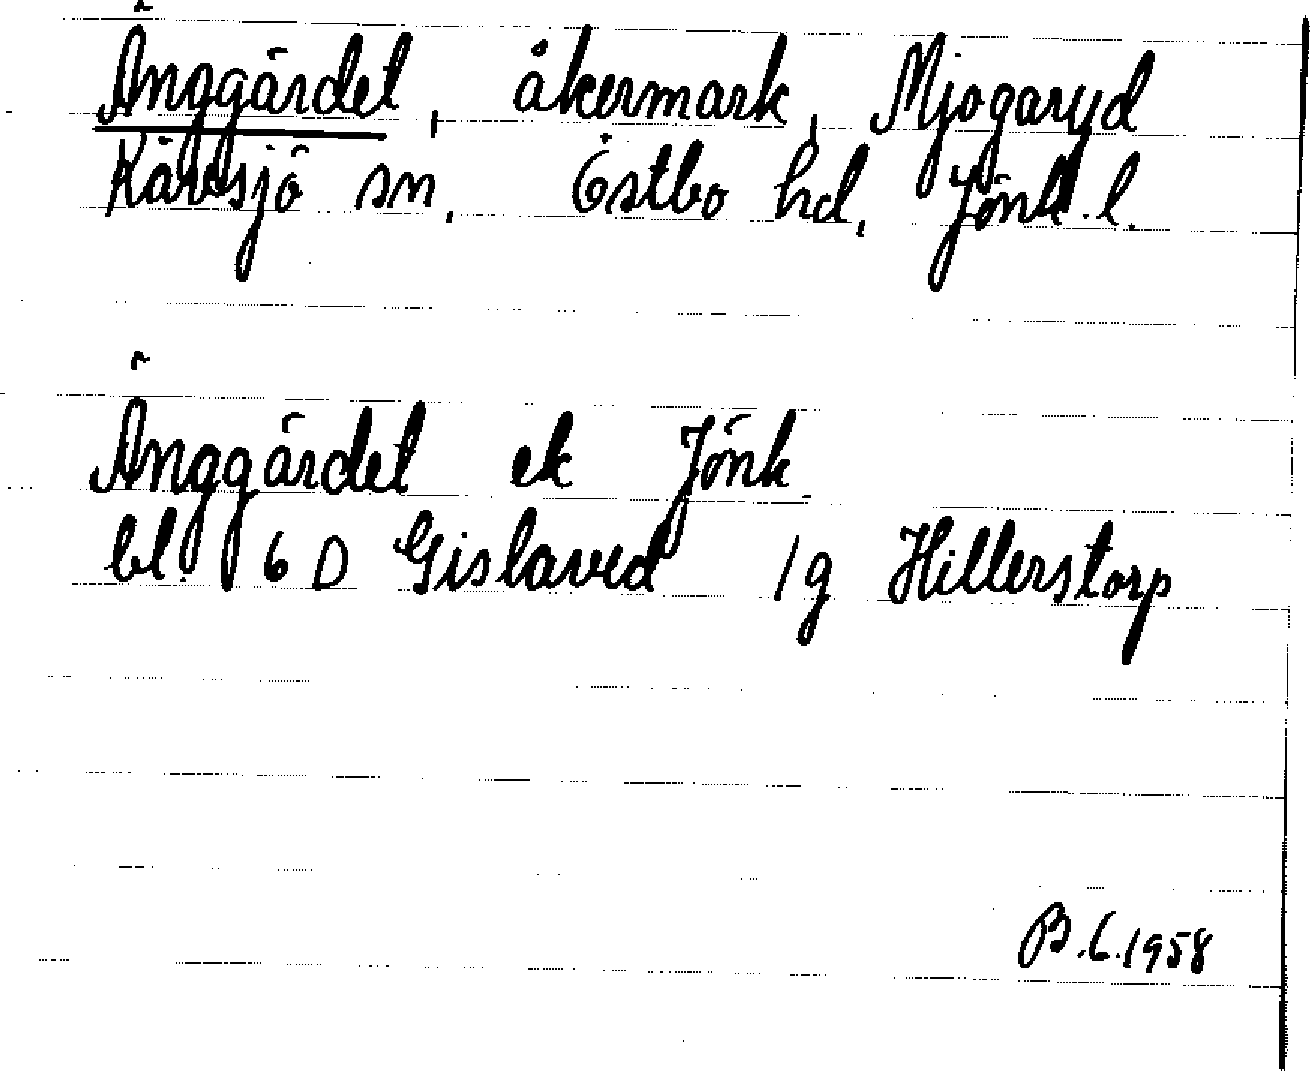 Änggärdet, åkermark, Mjogaryd
Kävsjö sn, Östbo hd, Jönk. l.
Änggärdet ek Jönk
bl. 6 D Gislaved 1g Hillerstorp
B.C.1958